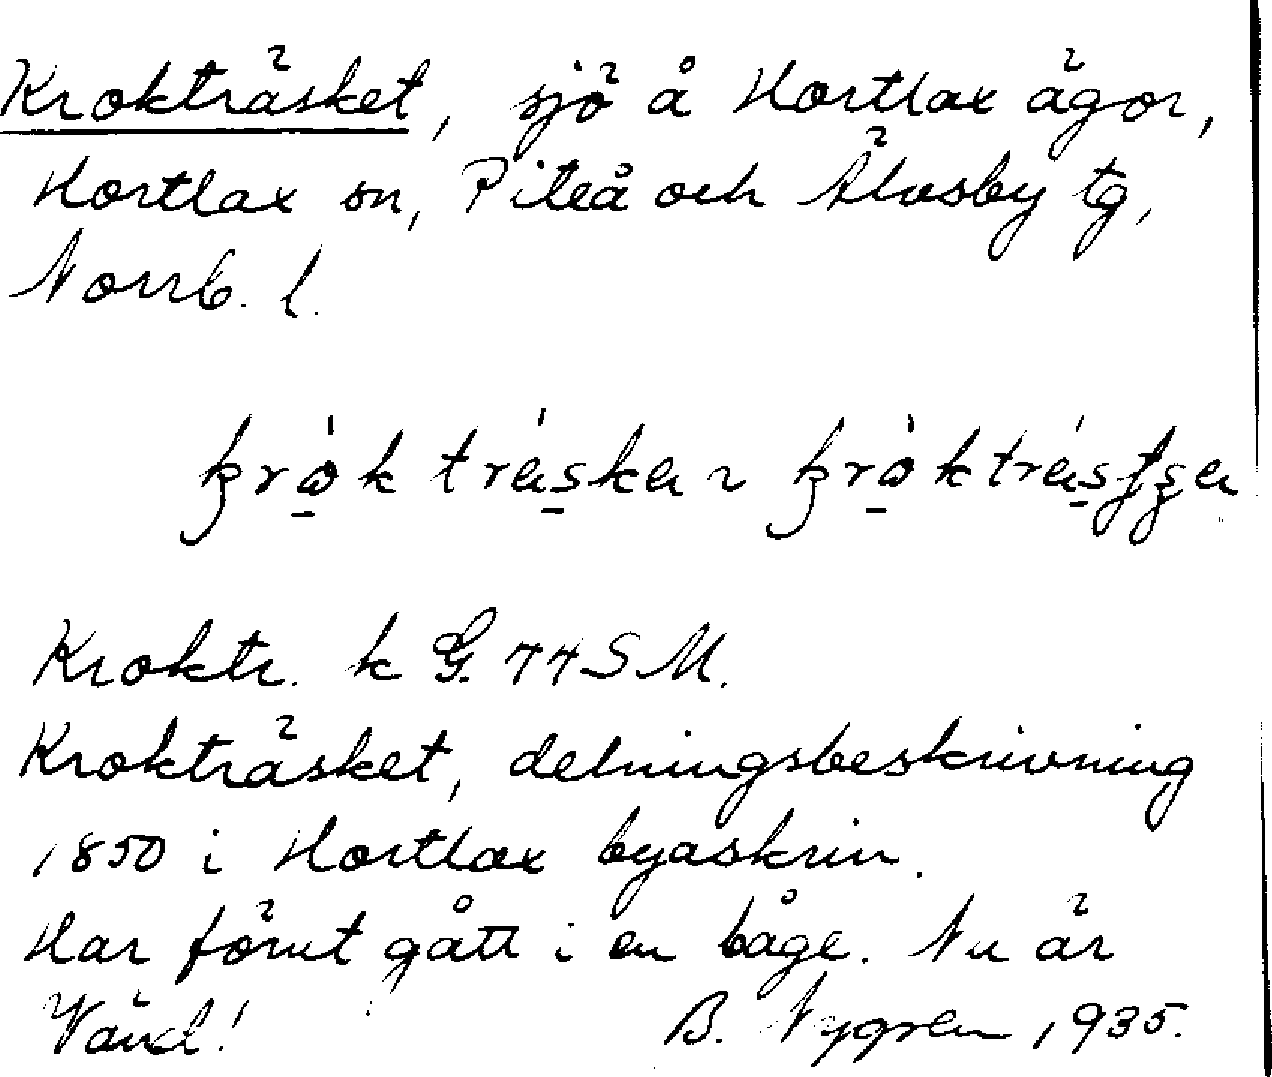 Krokträsket, sjö å Hortlax ägor,
Hortlax sn, Piteå och Älvsby tg,
Norrb. l.
Kroktr. k G. 74 S M.
Krokträsket, delningsbeskrivning
1850 i Hortlax byaskrin.
Har förut gått i en båge. Nu är
Vänd! B. Nygren 1935.